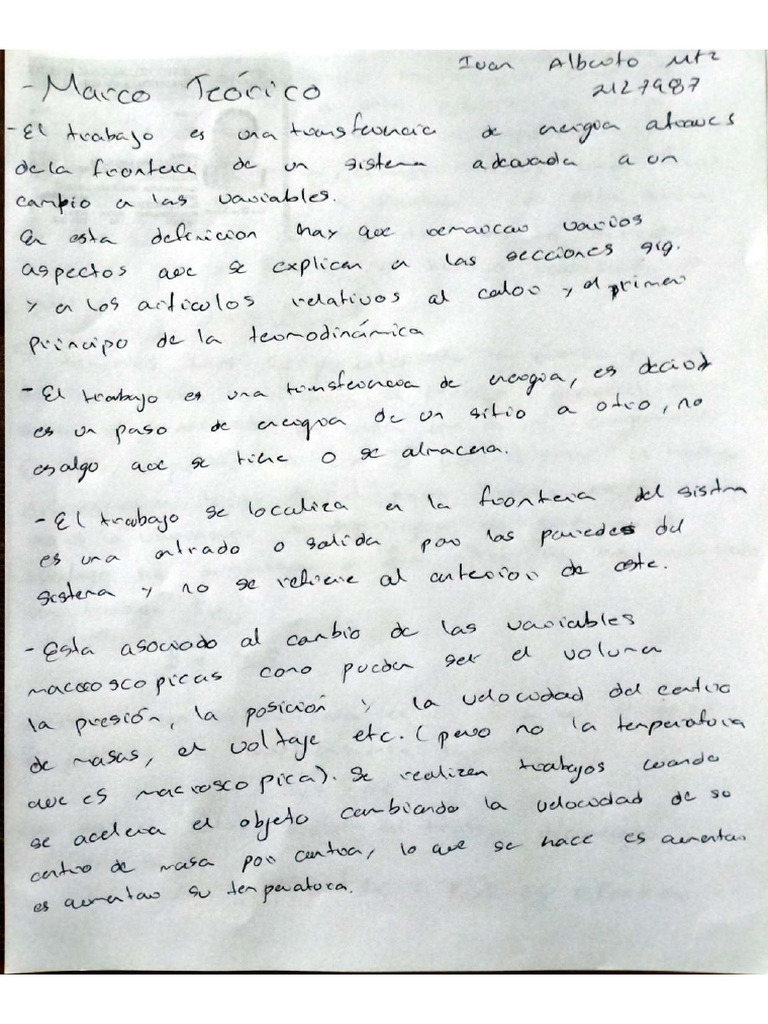 Ivan Alberto Mtz
- Marco Teórico
2127987
- El trabajo es una transferencia de energia atraves
de la frontera de un sistema adecuada a un
cambio en las variables.
En esta definicion hay que remarcar varios
aspectos que se explican en las secciones sig.
y en los articulos relativos al calor y el primer
principo de la termodinámica
- El trabajo es una transferencia de energia, es decir
es un paso de energia de un sitio a otro, no
es algo que se tiene o se almacena.
- El trabajo se localiza en la frontera del sistma
es una entrado o salida por las paredes del
sistema y no se refiere al anterior de este.
- Esta asociado al cambio de las variables
macroscopicas como pueden ser el volumen
la presión, la posición y la velocidad del centro
de masas, el voltaje etc. (pero no la temperatura
que es macroscopica). Se realizen trabajos cuando
se acelera el objeto cambiando la velocidad de su
centro de masa por contra, lo que se hace es aumentar
es aumentar su temperatura.